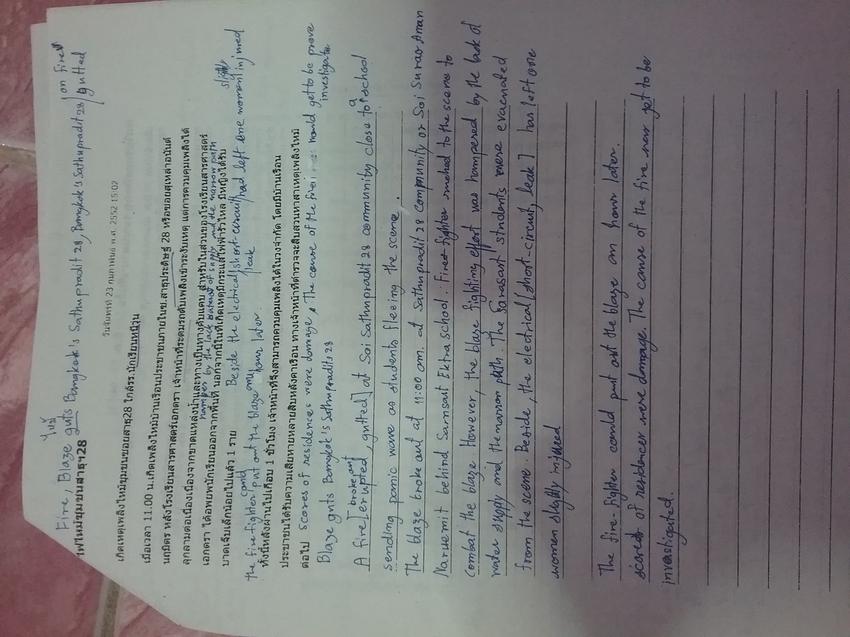 Fire, Blaze guts Bangkok's Sathupradit 28, Bangkok's Sathupradit 28 on fire
gutted
ไฟไหม้ชุมชนสาธุฯ28
วันจันทร์ที่ 23 กุมภาพันธ์ พ.ศ. 2552 15:02
เกิดเหตุเพลิงไหม้ชุมชนซอยสาธุ28 ใกล้รร.นักเรียนหนีวุ่น
เมื่อเวลา 11.00 น.เกิดเพลิงไหม้บ้านเรือนประชาชนภายในซ.สาธุประดิษฐ์ 28 หรือซอยสุเหล่าอนันต์
นฤมิตร หลังโรงเรียนสารศาสตร์เอกตรา เจ้าหน้าที่ระดมรถดับเพลิงเข้าระงับเหตุ แต่การควบคุมเพลิงได้
ลุกลามต่อเนื่องเนื่องจากขาดแหล่งน้ำและทางเป็นทางคับแคบ สำหรับในส่วนของโรงเรียนสารศาสตร์
hamper by the lack of supply and the narrow path
เอกตรา ได้อพยพนักเรียนออกจากพื้นที่ นอกจากนี้ในที่เกิดเหตุมีกระแสไฟฟ้ารั่วไหล มีหญิงได้รับ
Beside the electrical short-circuit had left one women injured
leak
บาดเจ็บเล็กน้อยไปแล้ว 1 ราย
the firefighter could put out the blaze an hour later.
ทั้งนี้หลังผ่านไปเกือบ 1 ชั่วโมง เจ้าหน้าที่จึงสามารถควบคุมเพลิงได้ในวงจำกัด โดยมีบ้านเรือน
ประชาชนได้รับความเสียหายหลายสิบหลังคาเรือน ทางเจ้าหน้าที่ตำรวจจะสืบสวนหาสาเหตุเพลิงไหม้
ต่อไป scores of residences were damage, The cause of the fire would get to be prove
investigate
Blaze guts Bangkok's Sathupradits 28
A fire [erupted, broke out, gutted] at Soi Sathupradit 28 community close to a school
sending panic wave as students fleeing the scene.
The blaze broke out at 11:00 am. at Sathupradit 28 community or Soi Surao Anan
Naruemit behind Sarasart Ektra school. Fire fighter rushed to the scene to
combat the blaze. However, the blaze fighting effort was hampered by the lack of
water supply and the narrow path. The Sarasart students were evacuated
from the scene. Beside, the electrical [short-circuit, leak] has left one
women slightly injured
The fire fighter could put out the blaze an hour later.
scores of residences were damage. The cause of the fire now get to be
investigated.